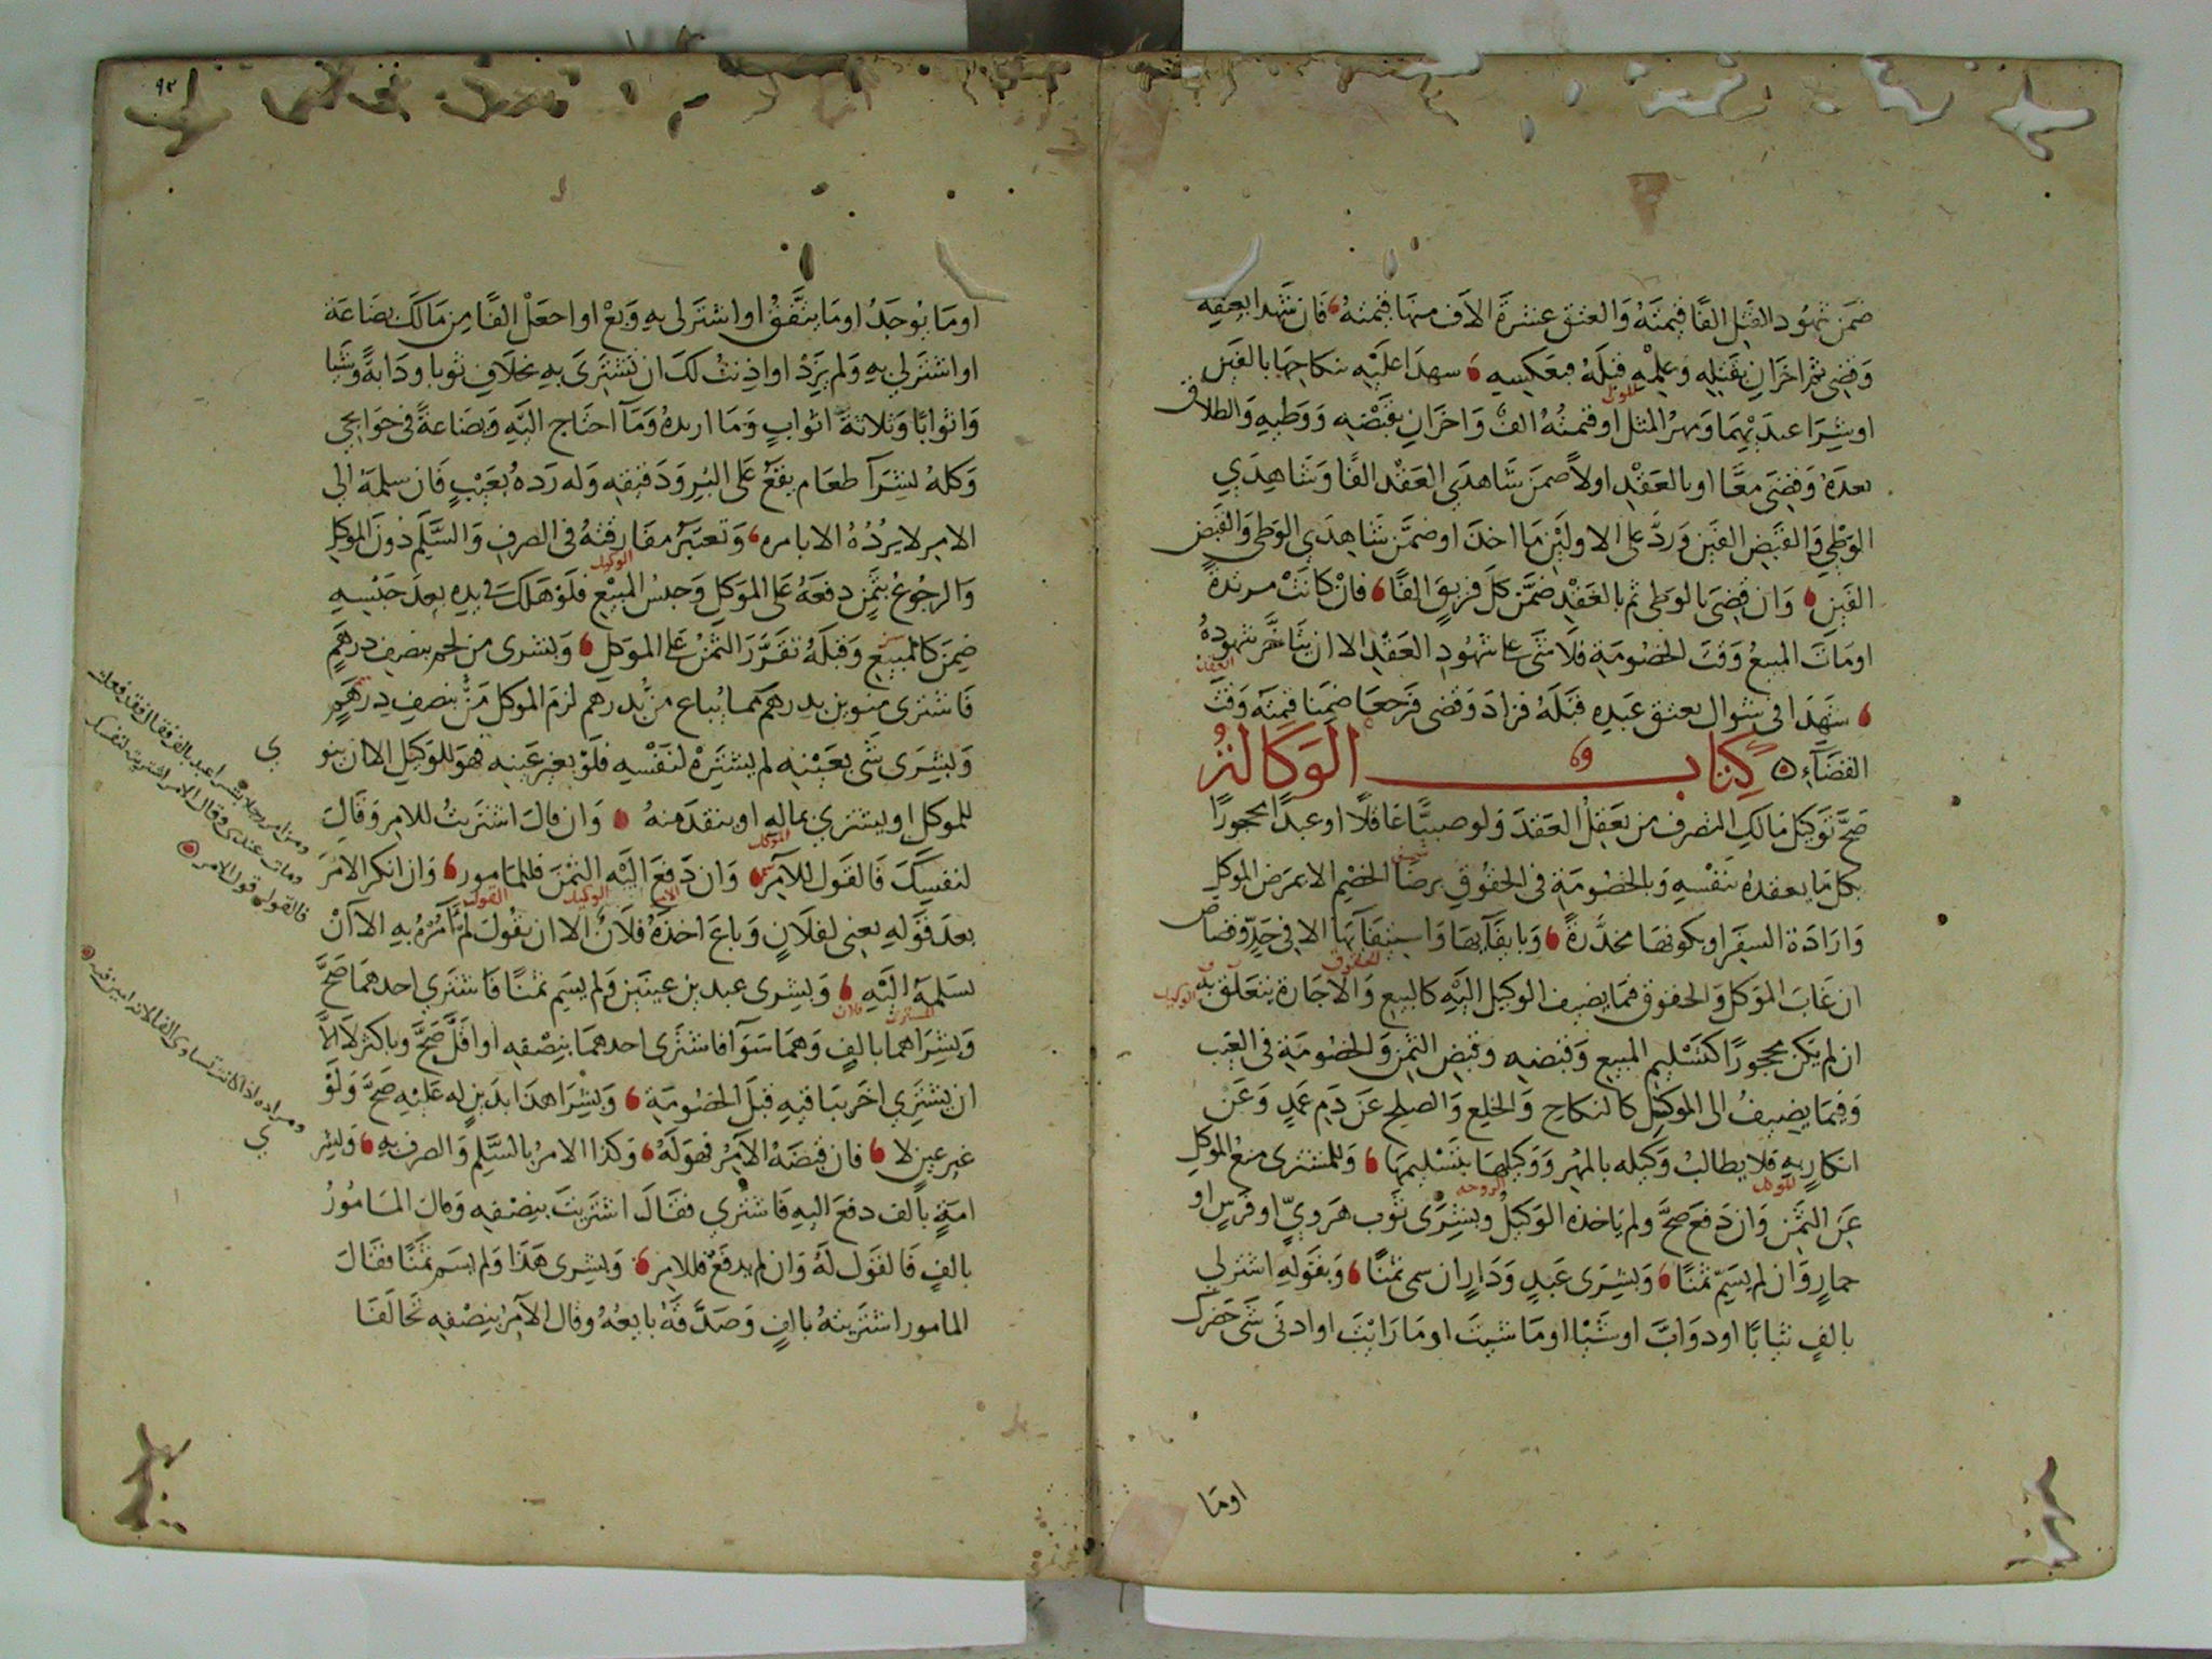 ضمن شهود القتل الفا قيمته والعتق عشرة الاف منها قيمته فان شهدا بعتقه
وقضى ثم اخران بقتله وعلمه قبله فبعكسه شهدا عليه بنكاحها بالفين
او بشرا عبد بهما ومهر المثل او قيمته الف واخران بقبضه ووطيه والطلاق
بعده وقضى معا او بالعقد اولا ضمن شاهدي العقد الفا وشاهدي
الوطي والقبض الفين ورد على الاولين ما اخذ او ضمن شاهدي الوطى والقبض
الفين وان قضى بالوطى ثم بالعقد ضمن كل فريق الفا فان كانت مرتدة
او مات المبيع وقت الخصومة فلا شى على شهود العقد الا ان يتاخر شهوده
العقد
شهدا فى شوال بعتق عبده قبله فزاد وقضى فرجعا ضمنا قيمته وقت
القضاء كتاب الوكالة
صح توكيل مالك التصرف من يعقل العقد ولو صبيا عاقلا او عبدا محجورا
بكل ما يعقده بنفسه وبالخصومة فى الحقوق برضا الخصم الا بمرض الموكل
وارادة السفر او بكونها مخدرة وبايفائها واستيفائها الا فى حد وقصاص
ان غاب الموكل والحقوق فيما يضيف الوكيل اليه كالبيع والاجارة يتعلق به
الحقوق
الوكيل
ان لم يكن محجورا كتسليم المبيع وقبضه وقبض الثمن والخصومة فى العيب
وفيما يضيف الى الموكل كالنكاح والخلع والصلح عن دم عمد وعن
انكار به فلا يطالب وكيله بالمهر ووكيلها بتسليمها وللمشترى منع الموكل
للموكل
الزوجة
عن الثمن وان دفع صح ولم ياخذه الوكيل وبشرى ثوب هروي او فرس او
حمار وان لم يسم ثمنا وبشرى عبد ودار ان سمى ثمنا وبقوله اشتر لي
بالف ثيابا او دواب او شيا او ما شيت او ما رايت او ادنى شى حضرك
اوما
٩٢
او ما يوجد او ما يتفق او اشتر لى به وبع او اجعل الفا من مالك بضاعة
او اشتر لي به ولم يزد او اذنت لك ان تشترى به بخلاف ثوبا ودابة وشيا
واثوابا وثلاثة اثواب وما اريده وما احتاج اليه وبضاعة فى حوايجي
وكله بشرآ طعام يقع على البر ودقيقه وله رده بعيب فان سلمه الى
الامر لا يرده الا بامره وتعتبر مفارقته فى الصرف والسلم دون الموكل
الوكيل
والرجوع بثمن دفعه على الموكل وحبس المبيع فلو هلك فى يده بعد حبسه
ضمن كالمبيع وقبله تقرر الثمن على الموكل وبشرى من لحم بنصف درهم
فاشترى منوين بدرهم مما يباع من بدرهم لزم الموكل من بنصف درهم
وبشرى شى بعينه لم يشتره لنفسه فلو بغير عينه هو للوكيل الا ان ينو
للموكل او يشتري بماله او ينقد منه وان قال اشتريت للامر وقال
الموكل
لنفسك فالقول للآمر وان دفع اليه الثمن فللمامور وان انكر الامر
الامر
الوكيل
القول
بعد قوله بعنى لفلان وباع اخذه فلان الا ان يقول لم آمره به الا ان
يسلمه اليه وبشرى عبدين عينين ولم يسم ثمنا فاشترى احدهما صح
المشترى
فلان
وبشراهما بالف وهما سوآ فاشترى احدهما بنصفه او اقل صح وباكثر لا الا
ان يشتري اخر بباقيه قبل الخصومة وبشرا هذا بدين له عليه صح ولو
غير عين لا فان قبضه الآمر فهو له وكذا الامر بالسلم والصرف به وبشر
امة بالف دفع اليه فاشترى فقال اشتريت بنصفه وقال المامور
بالف فالقول له وان لم يدفع فللامر وبشرى هذا ولم يسم ثمنا فقال
المامور اشتريته بالف وصدقه بايعه وقال الآمر بنصفه تحالفا
ومن امر رجلا بشرا عبد بالف فقال قد فعلت
ومات عندى وقال الامر اشتريته لنفسك
فالقول قول الامر
ومراده اذا كانت تساوى الفا لانه امين فيه